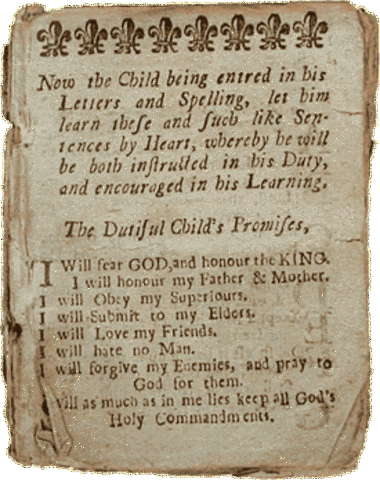 Now the Child being entred in his
Letters and Spelling, let him
learn theſe and ſuch like Sen-
tences by Heart, whereby he will
be both inſtructed in his Duty,
and encouraged in his Learning.
The Dutiful Child's Promiſes,
I Will fear GOD, and honour the KING.
I will honour my Father & Mother.
I will Obey my Superiours.
I will Submit to my Elders.
I will Love my Friends.
I will hate no Man.
I will forgive my Enemies, and pray to
God for them.
I will as much as in me lies keep all God's
Holy Commandments.